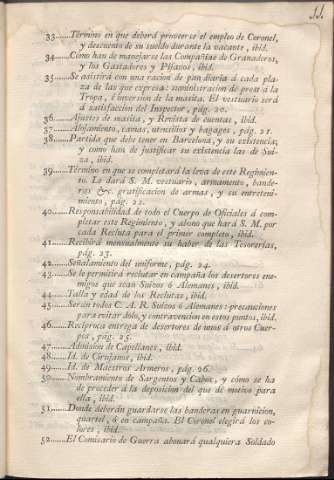 33......Término en que deberá proveerse el empleo de Coronel,
y descuento de su sueldo durante la vacante, ibid.
34......Cómo han de manejarse las Compañías de Granaderos,
y los Gastadores y Pífanos, ibid.
35......Se asistirá con una racion de pan diaria á cada pla-
za de las que expresa: suministracion de prest á la
Tropa, é inversion de la masita. El vestuario será
á satisfaccion del Inspector, pág. 20.
36......Ajustes de masita, y Revista de cuentas, ibid.
37......Alojamiento, camas, utensilios y bagages, pág. 21.
38......Partida que debe tener en Barcelona, y su existencia;
y como han de justificar su existencia las de Sui-
za, ibid.
39......Término en que se completará la leva de este Regimien-
to. Le dará S. M. vestuario, armamento, bande-
ras &c. gratificacion de armas, y su entreteni-
miento, pág. 22.
40......Responsabilidad de todo el Cuerpo de Oficiales á com-
pletar este Regimiento, y abono que hará S. M. por
cada Recluta para el primer completo, ibid.
41......Recibirá mensualmente su haber de las Tesorerías,
pág. 23.
42......Señalamiento del uniforme, pág. 24.
43......Se le permitirá reclutar en campaña los desertores ene-
migos que sean Suizos ó Alemanes, ibid.
44......Talla y edad de los Reclutas, ibid.
45......Serán todos C. A. R. Suizos ó Alemanes: precauciones
para evitar dolo, y contravencion en estos puntos, ibid.
46......Recíproca entrega de desertores de unos á otros Cuer-
pos, pág. 25.
47......Admision de Capellanes, ibid.
48......Id. de Cirujanos, ibid.
49......Id. de Maestros Armeros, pág. 26.
50......Nombramiento de Sargentos y Cabos, y cómo se ha
de proceder á la deposicion del que dé motivo para
ella, ibid.
51......Donde deberán guardarse las banderas en guarnicion,
quartel, ó en campaña. El Coronel elegirá los co-
lores, ibid.
52......El Comisario de Guerra abonará qualquiera Soldado